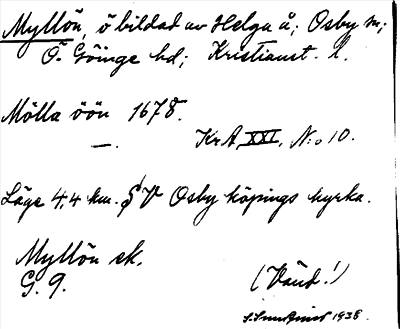 Myllön, ö bildad av Helga å; Osby sn;
Ö. Göinge hd; Kristianst. l.
Mölla öön 1678.
—. KrA XXI, N:o 10.
Läge 4,4 km. S V Osby köpings kyrka.
Myllön ek.
G. 9. (Vänd!)
1938